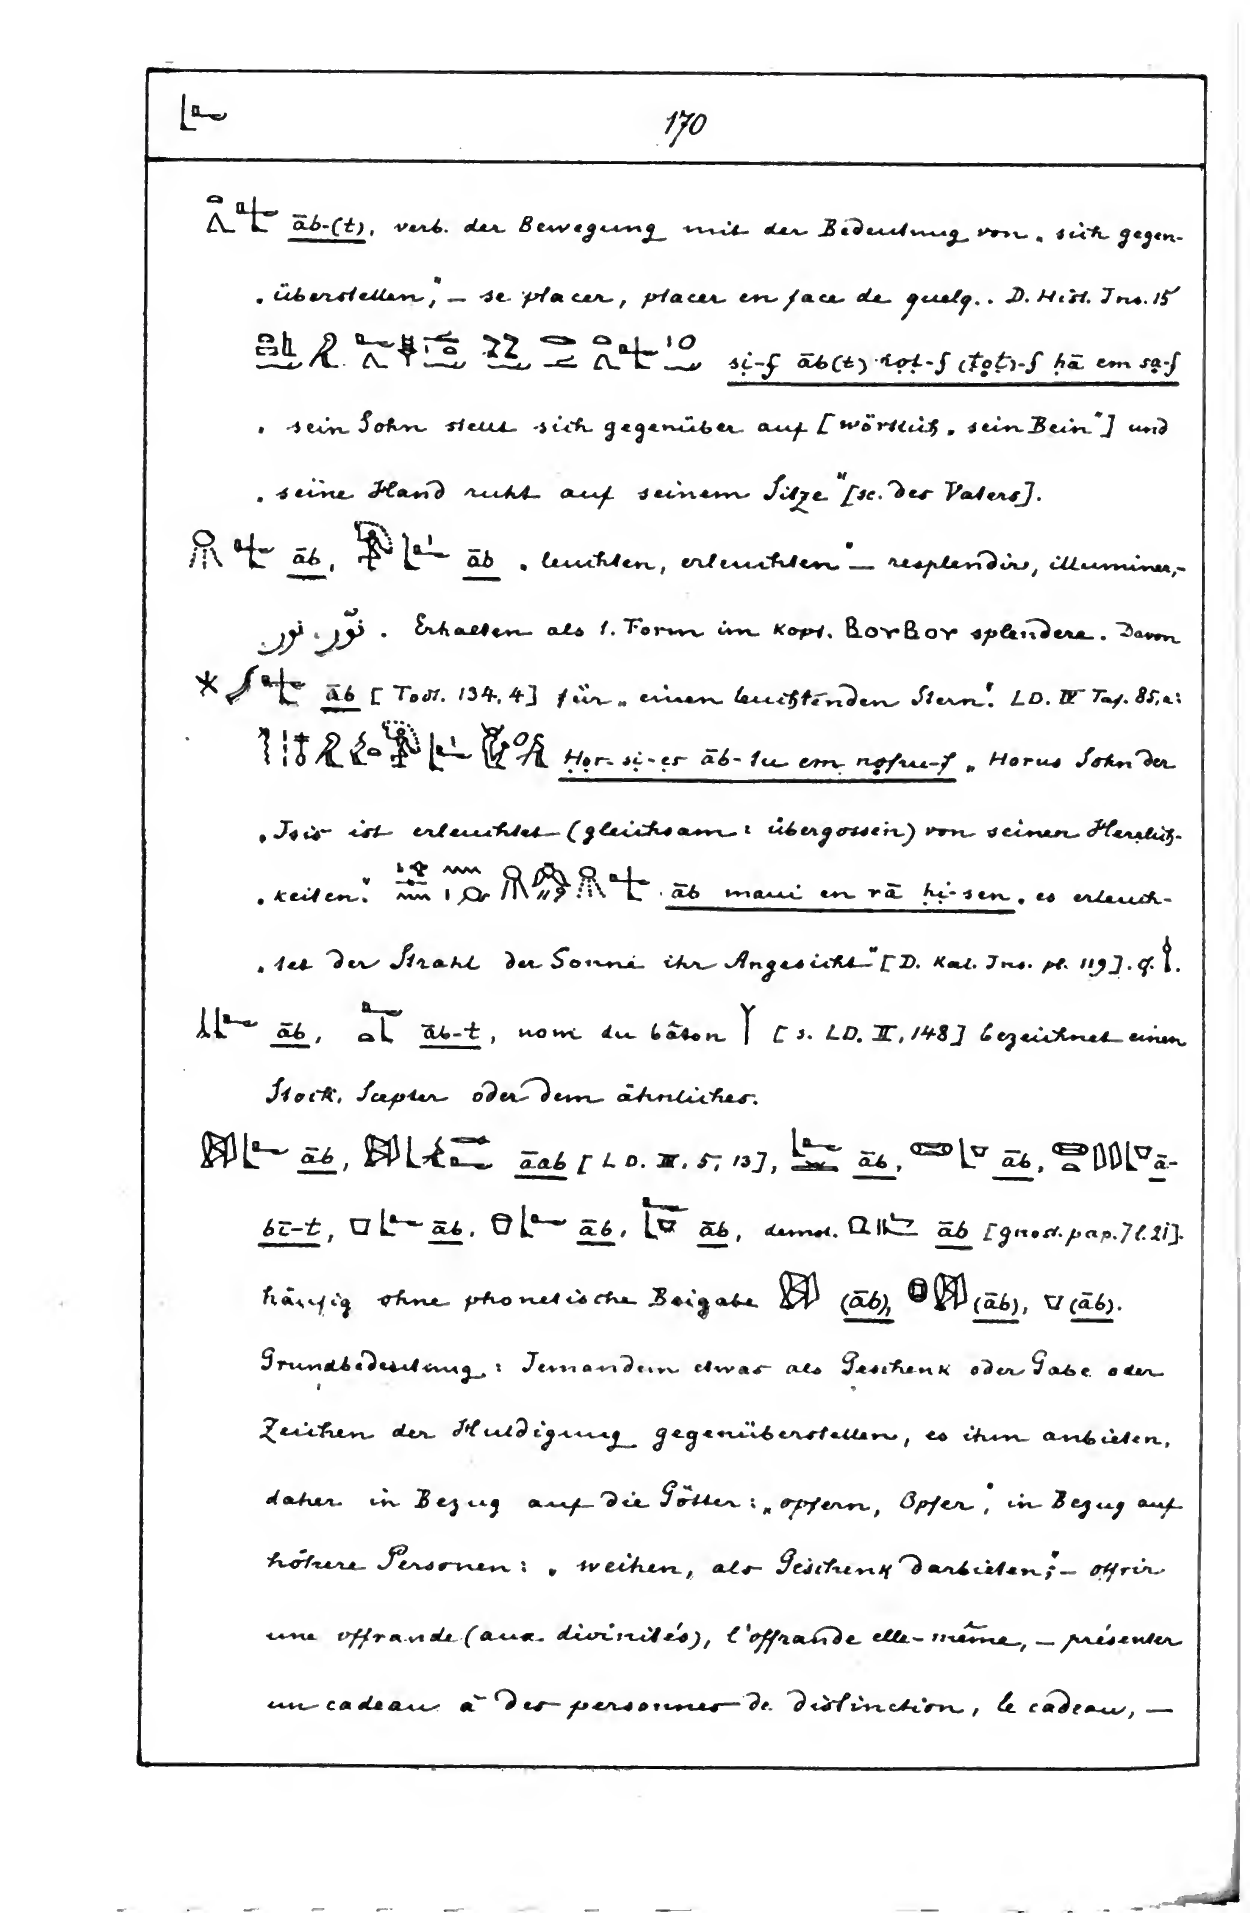 170
āb-(t), verb. der Bewegung mit der Bedeutung von „sich gegen-
„überstellen“, — se placer, placer en face de quelq.. D. Hist. Ins. 15
si̤-f āb(t) ro̤t-f (to̤t)-f ḥā em sa̤-f
„sein Sohn stellt sich gegenüber auf [wörtlich „sein Bein“] und
„seine Hand ruht auf seinem Sitze“ [sc. des Vaters].
āb, āb „leuchten, erleuchten“ — resplendir, illuminer, -
نور، نوّر. Erhalten als 1. Form im kopt. ⲂⲟⲩⲂⲟⲩ splendere. Davon
āb [Todt. 134, 4] für „einen leuchtenden Stern“. LD. IV Taf. 85, a:
Ho̤r- si̤- e̤s āb-tu em no̤fru-f „Horus Sohn der
„Isis ist erleuchtet (gleichsam: übergossen) von seinen Herrlich-
„keiten“. āb maui en rā ḥi̤-sen „es erleuch-
„tet der Strahl der Sonne ihr Angesicht“ [D. Kal. Ins. pl. 119]. cf.
āb, āb-t, nom du bâton [s. LD. II, 148] bezeichnet einen
Stock, Scepter oder dem ähnliches.
āb, āab [LD. III. 5, 13], āb, āb, ā-
bī-t, āb, āb, āb, demot. āb [gnost. pap. 7 l. 21].
häufig ohne phonetische Beigabe (āb), (āb), (āb).
Grundbedeutung: Jemandem etwas als Geschenk oder Gabe oder
Zeichen der Huldigung gegenüberstellen, es ihm anbieten,
daher in Bezug auf die Götter: „opfern, Opfer“, in Bezug auf
höhere Personen: „weihen, als Geschenk darbieten“; — offrir
une offrande (aux divinités), l'offrande elle-même, — présenter
un cadeau à des personnes de distinction, le cadeau, —